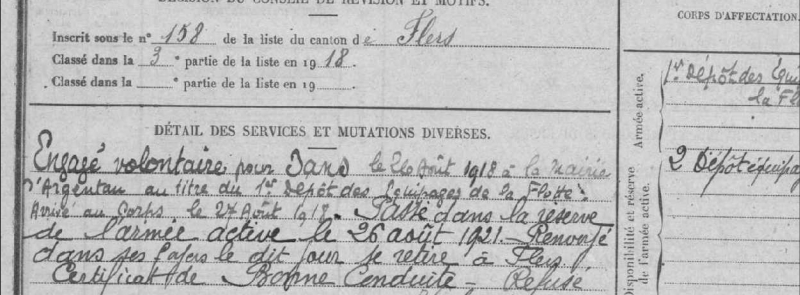 DÉCISION DU CONSEIL DE RÉVISION ET MOTIFS.
Inscrit sous le n° 158 de la liste du canton de Flers
Classé dans la 3e partie de la liste en 1918.
Classé dans la partie de la liste en 19
DÉTAIL DES SERVICES ET MUTATIONS DIVERSES.
Engagé volontaire pour 3 ans le 26 Août 1918 à la Mairie
d'Argentan au titre du 1er Dépôt des Equipages de la Flotte.
Arrivé au Corps le 27 Août 1918. Passé dans la réserve
de l'armée active le 26 août 1921. Renvoyé
dans ses foyers le dit jour se retire à Flers
Certificat de Bonne Conduite - Refusé
CORPS D'AFFECTATION.
Armée active.
1er Dépôt des Équi
la Fl
Disponibilité et réserve
de l'armée active.
2 Dépôt équipa